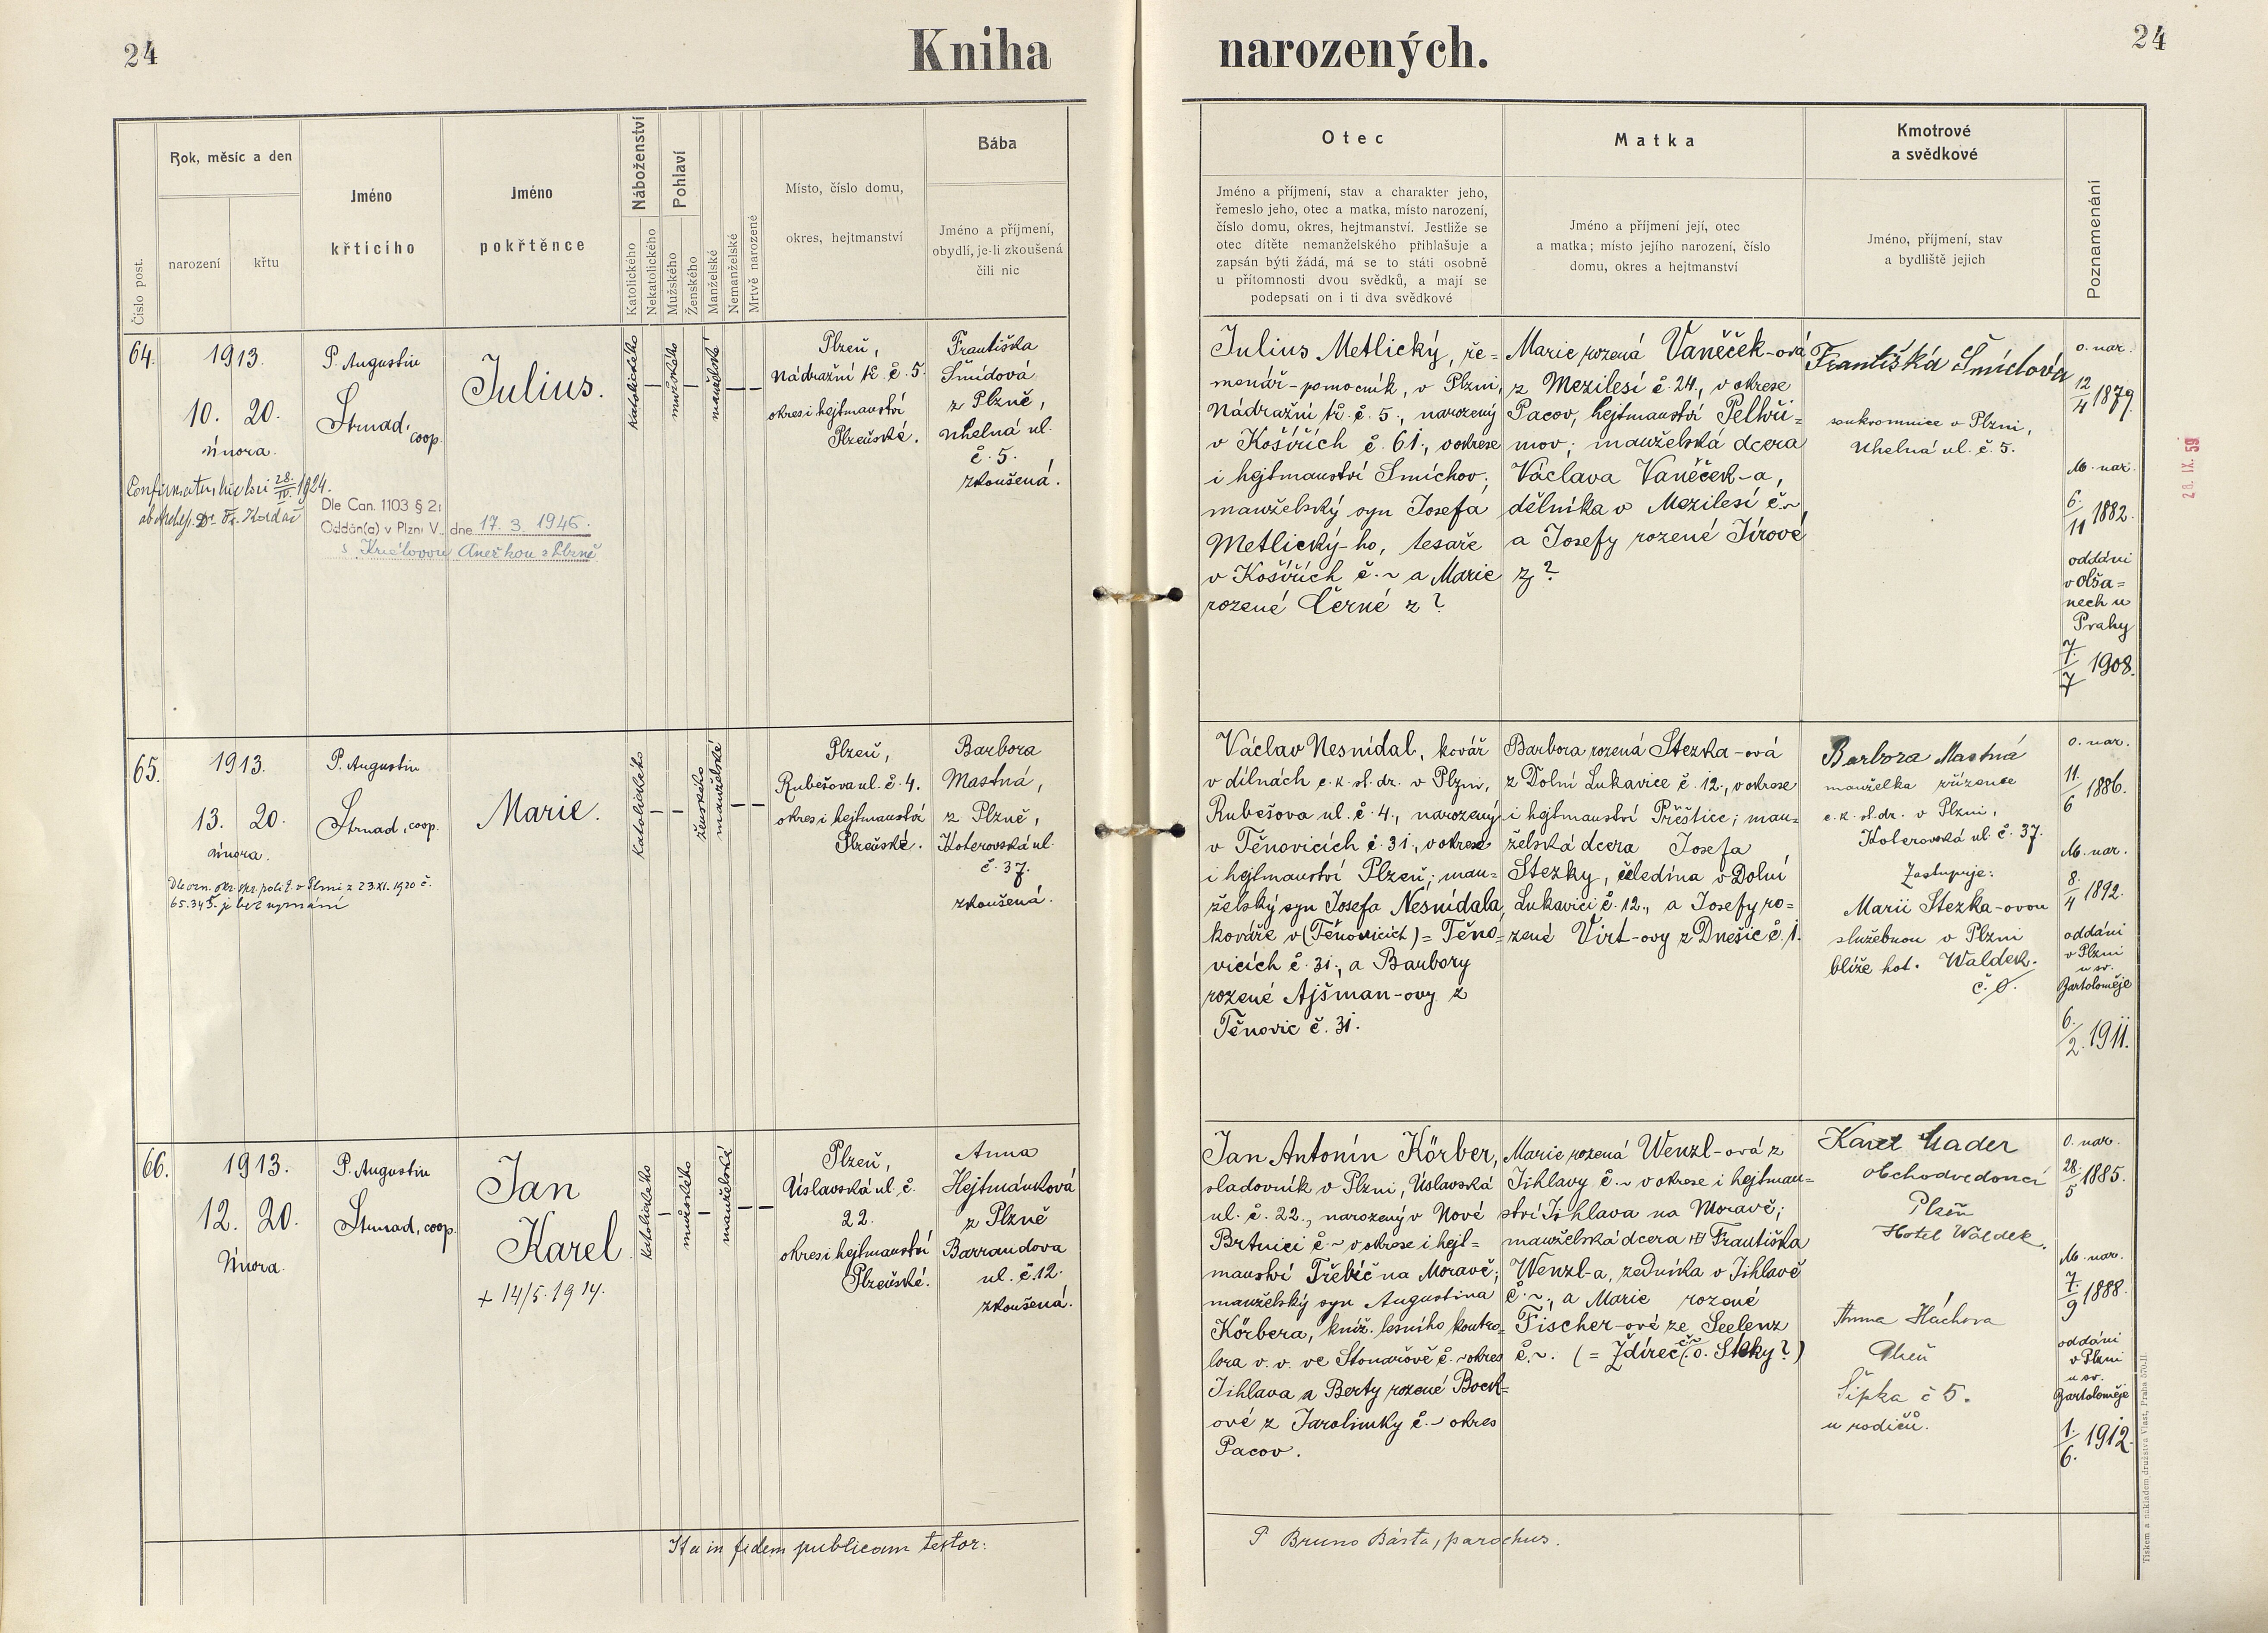 24
Kniha narozených.
24
Číslo post.
Rok, měsíc a den
narození
křtu
Jméno
křticího
Jméno
pokřtěnce
Náboženství
Katolického
Nekatolického
Pohlaví
Mužského
Ženského
Manželské
Nemanželské
Mrtvě narozené
Místo, číslo domu,
okres, hejtmanství
Bába
Jméno a příjmení,
obydlí, je-li zkoušená
čili nic
Otec
Jméno a příjmení, stav a charakter jeho,
řemeslo jeho, otec a matka, místo narození,
číslo domu, okres, hejtmanství. Jestliže se
otec dítěte nemanželského přihlašuje a
zapsán býti žádá, má se to státi osobně
u přítomnosti dvou svědků, a mají se
podepsati on i ti dva svědkové
Matka
Jméno a příjmení její, otec
a matka; místo jejího narození, číslo
domu, okres a hejtmanství
Kmotrové
a svědkové
Jméno, příjmení, stav
a bydliště jejich
Poznamenání
64.
1913.
10. 20.
února.
P. Augustin
Strnad, coop.
Julius.
katolického
mužského
manželské
Plzeň,
Nádražní tř. č. 5.
okres i hejtmanství
Plzeňské.
Františka
Šmídová
z Plzně,
Uhelná ul.
č. 5.
zkoušená.
Confirmatus hic loci 28./IV. 1924.
ab Archiep. Dr. Fr. Kordač
Dle Can. 1103 § 2:
Oddán(a) v Plzni V., dne 17. 3. 1945.
s Královou Anežkou z Plzně
Julius Metlický, ře=
menář-pomocník, v Plzni,
Nádražní tř. č. 5., narozený
v Košířích č. 61., v okrese
i hejtmanství Smíchov;
manželský syn Josefa
Metlický-ho, tesaře
v Košířích č. ~ a Marie
rozené Černé z ?
Marie rozená Vaněček-ová
z Mezilesí č. 24., v okrese
Pacov, hejtmanství Pelhři=
mov; manželská dcera
Václava Vaněček-a,
dělníka v Mezilesí č. ~
a Josefy rozené Jírové
z ?
Františka Šmídová
soukromnice v Plzni,
Uhelná ul. č. 5.
O. nar.
12/4 1879.
M. nar.
6./11 1882.
oddáni
v Olša=
nech u
Prahy
7./7 1908.
28. IX. 59
65.
1913.
13. 20.
února.
P. Augustin
Strnad, coop.
Marie.
katolického
ženského
manželské
Plzeň,
Rubešova ul. č. 4.
okres i hejtmanství
Plzeňské.
Barbora
Mastná,
z Plzně,
Koterovská ul.
č. 37.
zkoušená.
Dle ozn. okr. spr. polit. v Plzni z 23.XI. 1920 č.
65.345. je bez vyznání
Václav Nesnídal, kovář
v dílnách c. k. st. dr. v Plzni,
Rubešova ul. č. 4., narozený
v Těnovicích č. 31., v okrese
i hejtmanství Plzeň; man=
želský syn Josefa Nesnídala,
kováře v (Těnovicích) = Těno=
vicích č. 31., a Barbory
rozené Ajšman-ovy z
Těnovic č. 31.
Barbora rozená Stezka-ová
z Dolní Lukavice č. 12., v okrese
i hejtmanství Přeštice; man=
želská dcera Josefa
Stezky, čeledína v Dolní
Lukavici č. 12., a Josefy ro=
zené Virt-ovy z Dnešic č. 1.
Barbora Mastná
manželka zřízence
c. k. st. dr. v Plzni,
Koterovská ul. č. 37.
Zastupuje:
Marii Stezka-ovou
služebnou v Plzni
blíže hot. Waldek.
č. 0.
O. nar.
11./6 1886.
M. nar.
8./4 1892.
oddáni
v Plzni
u sv.
Bartoloměje
6./2. 1911.
66.
1913.
12. 20.
Února.
P. Augustin
Strnad, coop.
Jan
Karel.
+ 14/5. 1914.
katolického
mužského
manželské
Plzeň,
Úslavská ul. č.
22.
okres i hejtmanství
Plzeňské.
Anna
Hejtmánková
z Plzně
Barrandova
ul. č. 12.
zkoušená.
Jan Antonín Körber,
sladovník v Plzni, Úslavská
ul. č. 22., narozený v Nové
Brtnici č. ~ v okrese i hejt=
manství Třebíč na Moravě;
manželský syn Augustina
Körbera, kníž. lesního kontro=
lora v. v. ve Stonařově č. ~ okres
Jihlava a Berty rozené Bock=
ové z Jarolimky č. ~ okres
Pacov.
Marie rozená Wenzl-ová z
Jihlavy č. ~ v okrese i hejtman=
ství Jihlava na Moravě;
manželská dcera Františka
Wenzl-a, zedníka v Jihlavě
č. ~, a Marie rozené
Fischer-ové ze Seelenz
č. ~. (= Ždírec č. ~ o. Štoky?)
Karel Mader
obchodvedoucí
Plzeň
Hotel Waldek.
Anna Háchova
Plzeň
Šipka č 5.
u rodičů.
O. nar.
28./5 1885.
M. nar.
7./9 1888.
oddáni
v Plzni
u sv.
Bartoloměje
1./6. 1912.
Ita in fidem publicam testor:
P Bruno Bárta, parochus.
Tiskem a nákladem družstva Vlast, Praha 570-II.